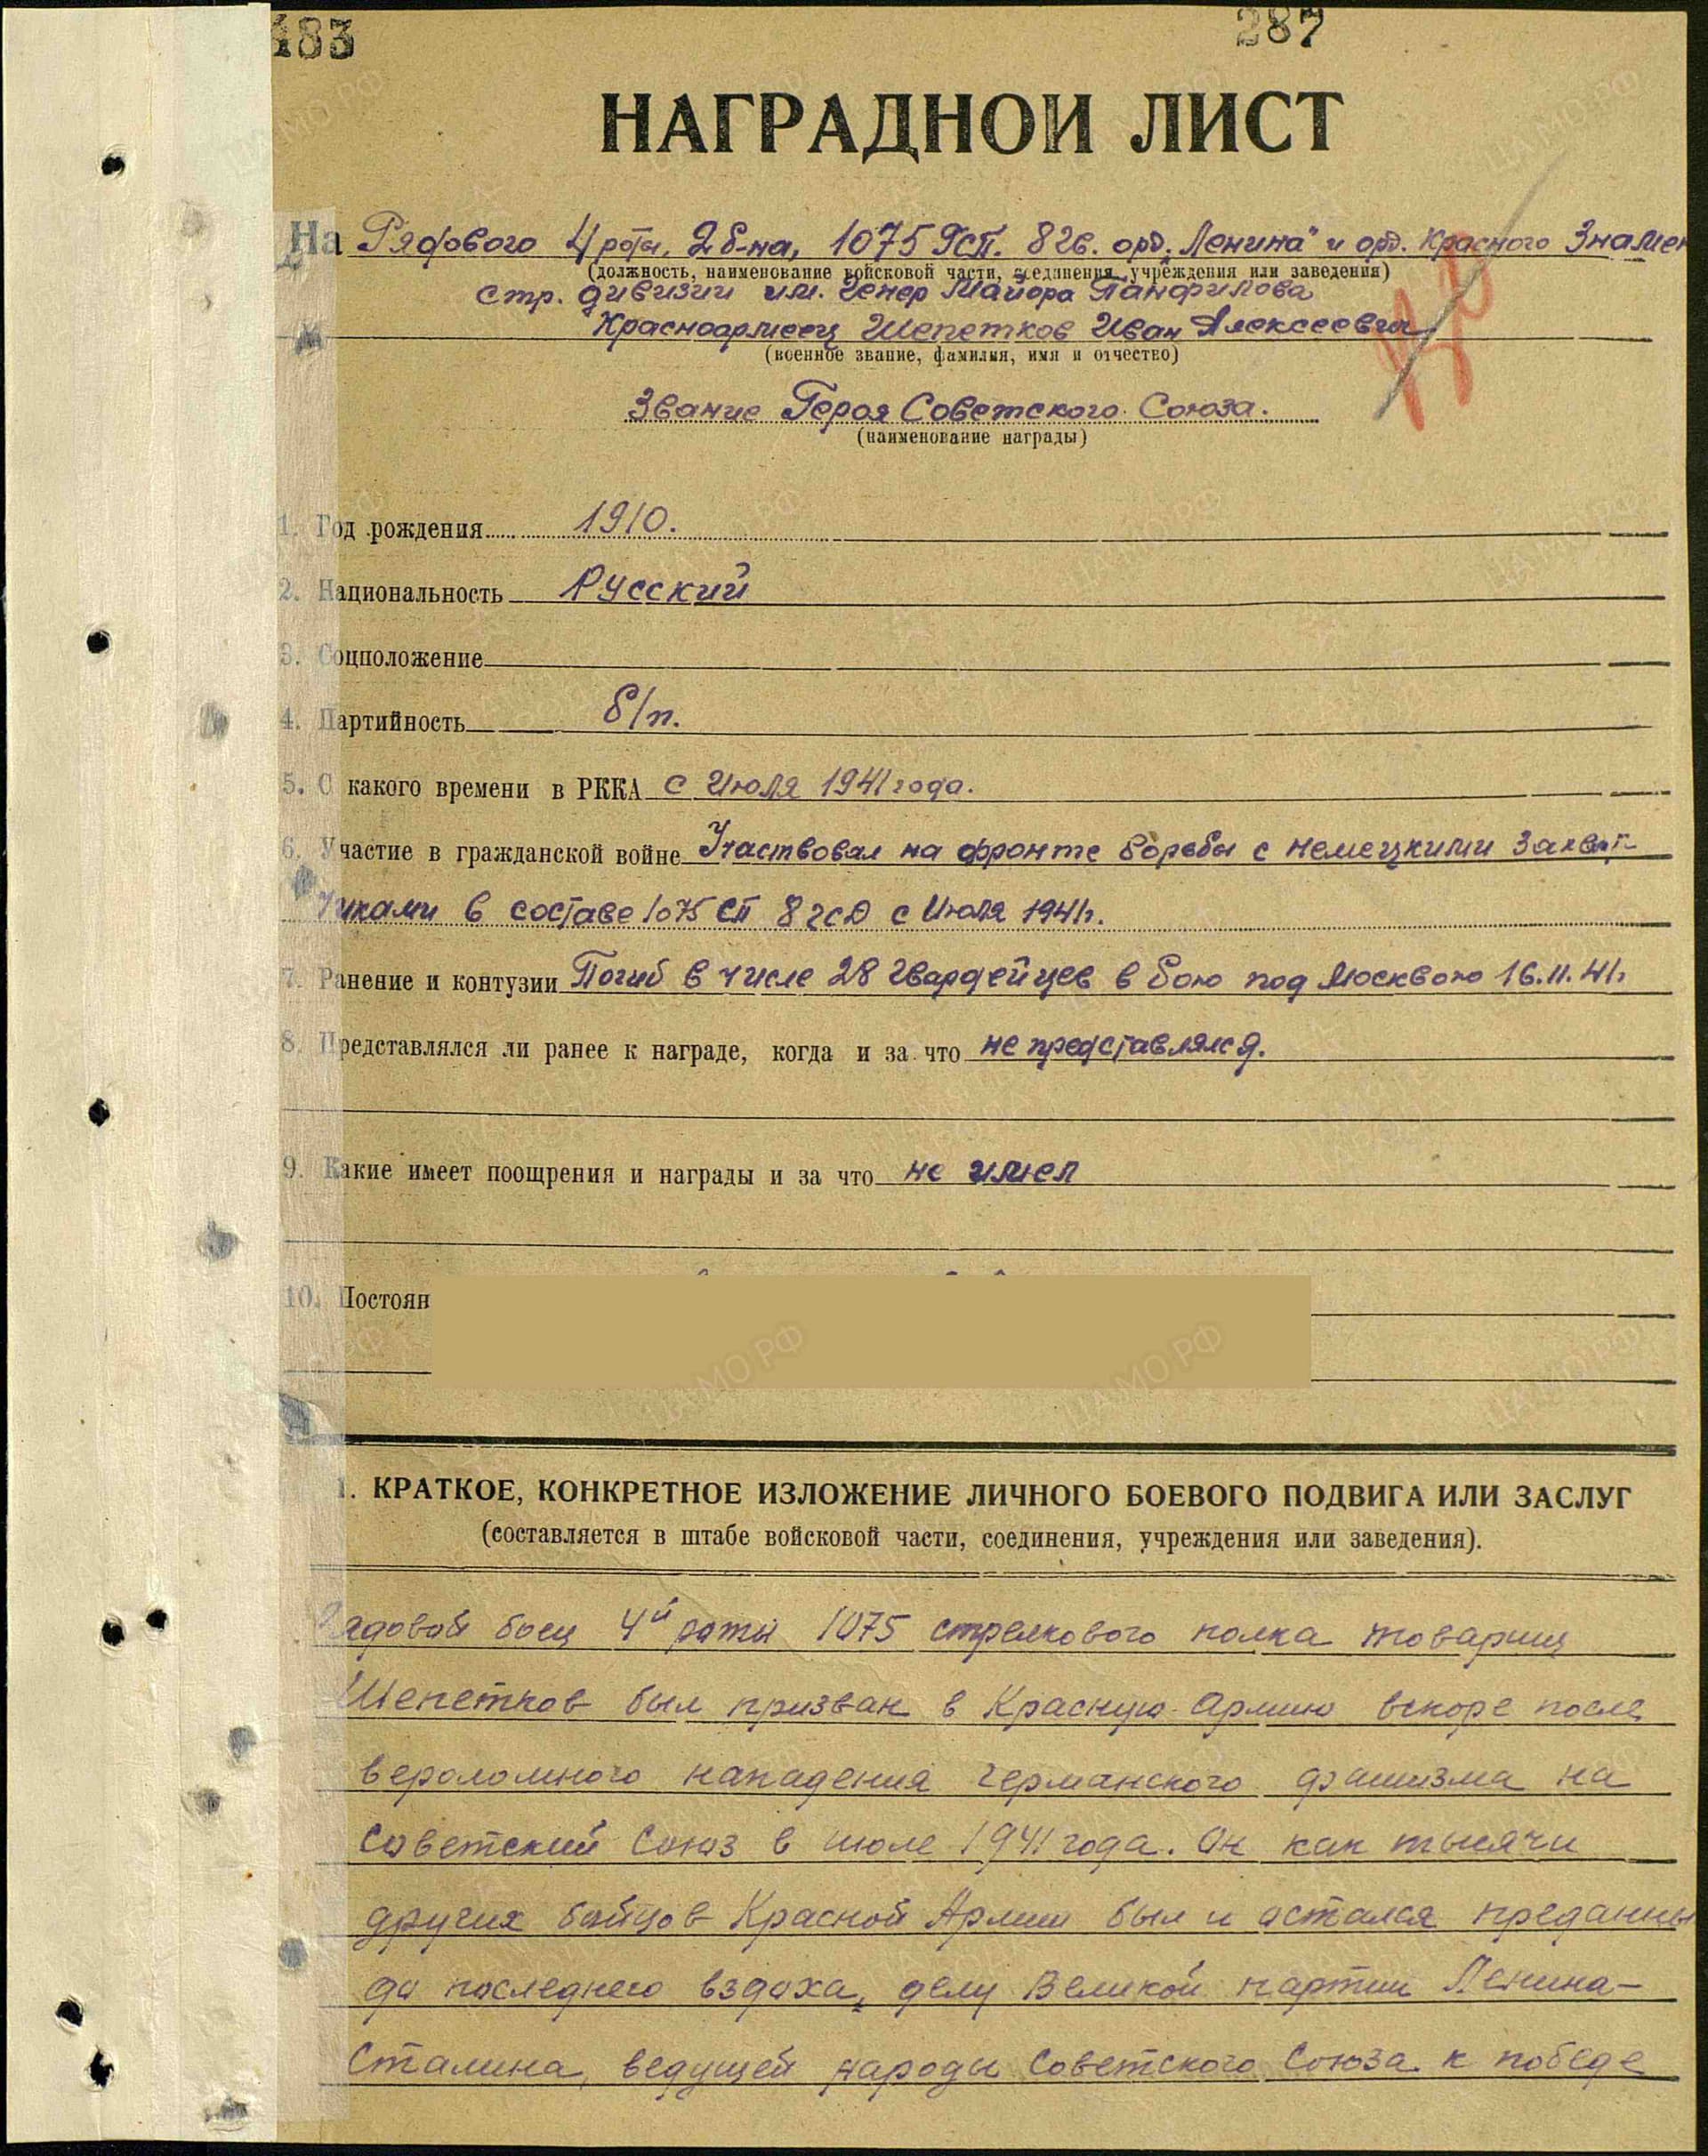 483 287
НАГРАДНОЙ ЛИСТ
На Рядового 4 роты, 2 б-на, 1075 Гсп. 8 гв. орд. „Ленина" и орд. Красного Знамен
(должность, наименование войсковой части, соединения, учреждения или заведения)
стр. дивизии им. Генер Майора Панфилова
Красноармеец Шепетков Иван Алексеевич
(военное звание, фамилия, имя и отчество)
Звание Героя Советского Союза.
(наименование награды)
1. Год рождения 1910.
2. Национальность Русский
3. Соцположение
4. Партийность б/п.
5. С какого времени в РККА с Июля 1941 года.
6. Участие в гражданской войне Участвовал на фронте борьбы с немецкими захват-
чиками в составе 1075 СП 8 гсд с Июля 1941г.
7. Ранение и контузии Погиб в числе 28 гвардейцев в бою под Москвою 16.11.41г.
8. Представлялся ли ранее к награде, когда и за что не представлялся.
9. Какие имеет поощрения и награды и за что не имел
10. Постоян
1. КРАТКОЕ, КОНКРЕТНОЕ ИЗЛОЖЕНИЕ ЛИЧНОГО БОЕВОГО ПОДВИГА ИЛИ ЗАСЛУГ
(составляется в штабе войсковой части, соединения, учреждения или заведения).
Рядовой боец 4й роты 1075 стрелкового полка товарищ
Шепетков был призван в Красную Армию вскоре после
вероломного нападения германского фашизма на
Советский Союз в июле 1941 года. Он как тысячи
других бойцов Красной Армии был и остался преданны
до последнего вздоха, делу Великой партии Ленина-
Сталина, ведущей народы Советского Союза к победе